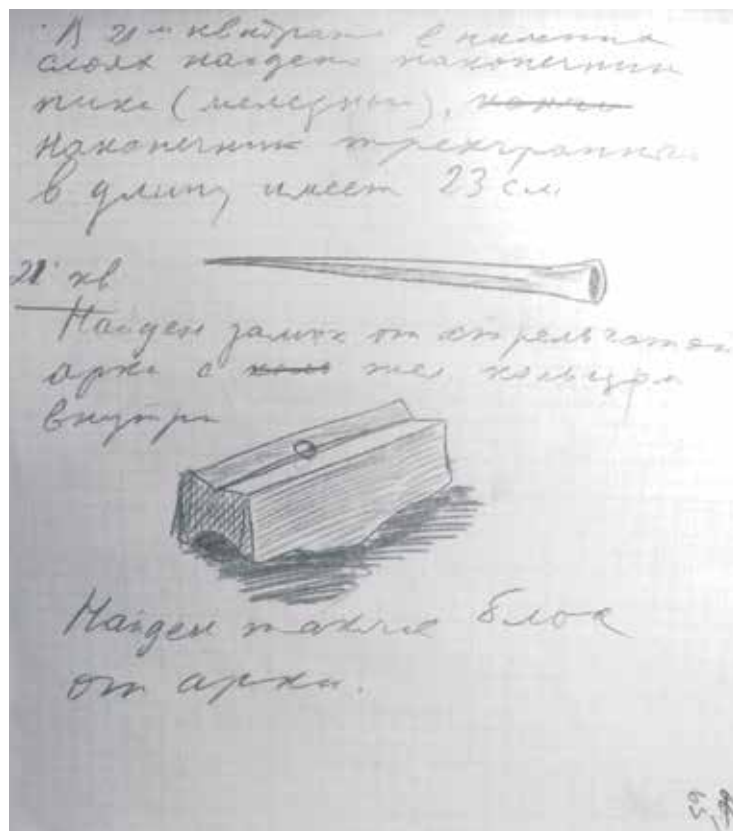 В 21м квадрате в
слоях найден наконечник
пики (        ), ~~        ~~
наконечник трехгранный
в длину имеет 23 см.
21 кв
Найден замок от стрельчатой
арки с        жел кольцом
внутри
Найден также блок
от арки.